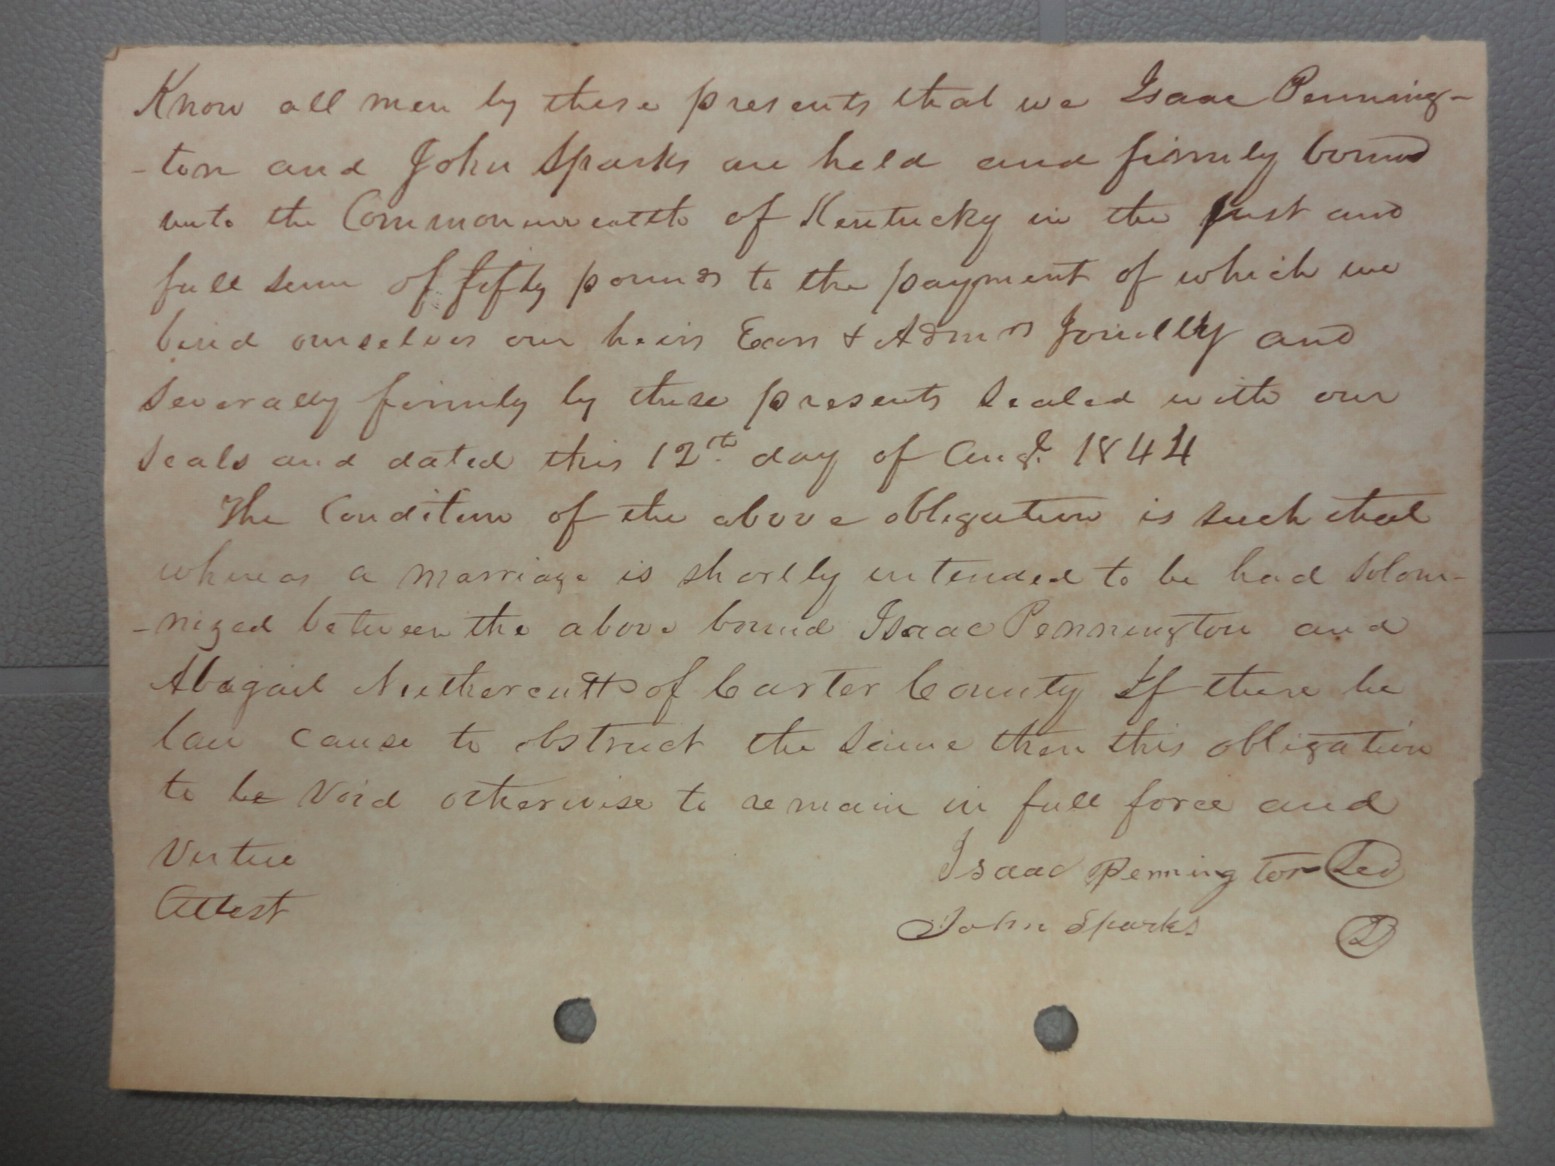 Know all men by these presents that we Isaac Penning-
-ton and John Sparks are held and firmly bound
unto the Commonwealth of Kentucky in the just and
full sum of fifty pounds to the payment of which we
bind ourselves our heirs Exors & Admrs Jointly and
severally firmly by these presents sealed with our
seals and dated this 12th day of Augt. 1844
The Condition of the above obligation is such that
whereas a marriage is shortly intended to be had solom-
-nized between the above bound Isaac Pennington and
Abagail Nethercutt of Carter County If there be
law cause to obstruct the same then this obligation
to be Void otherwise to remain in full force and
Vertue
Isaac Pennington
Attest
John Sparks